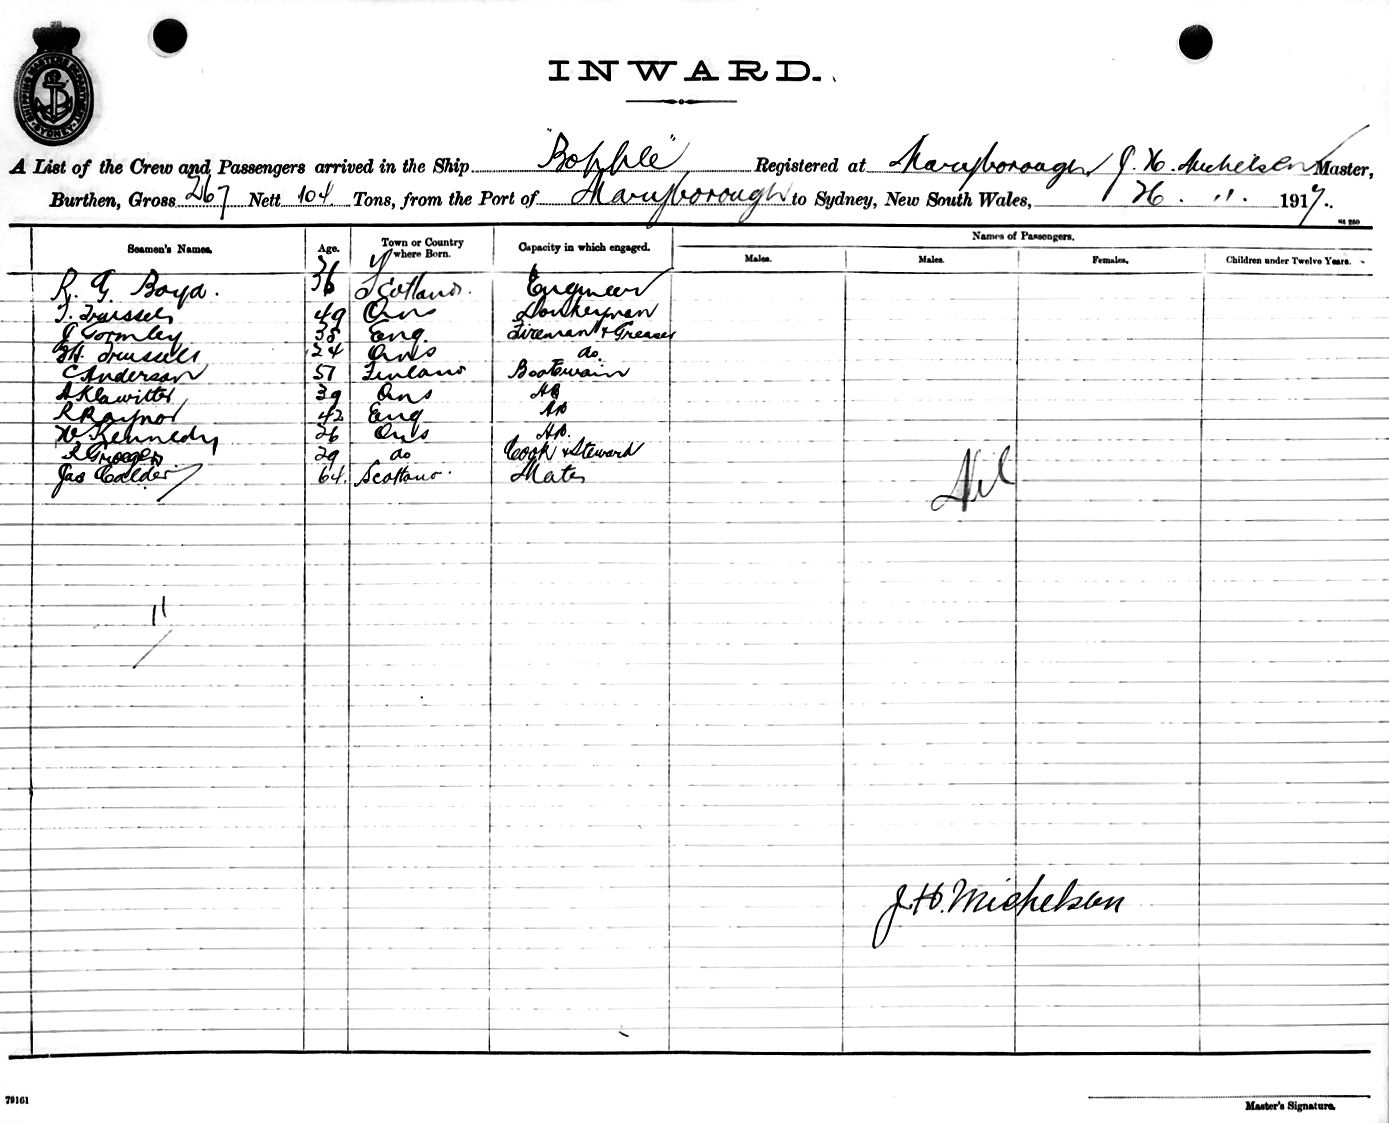 SHIPPING MASTER'S DEPARTMENT SYDNEY
INWARD.
A List of the Crew and Passengers arrived in the Ship "Bopple" Registered at Maryborough J. H. Michelsen Master,
Burthen, Gross 267 Nett 104 Tons, from the Port of Maryborough to Sydney, New South Wales, 26 . 11 . 1917.
Seamen's Names. Age. Town or Country where Born. Capacity in which engaged. Names of Passengers.
Males. Males. Females. Children under Twelve Years.
R. G. Boyd. 36 Scotland. Engineer
T. 49 Donkeyman
J Gormley 38 Eng. Fireman & Greaser
24 do.
C Anderson 57 Finland Boatswain
A Klawitter 39 AB
R Raynor 42 Eng AB
W Kennedy 26 AB.
29 do Cook & Steward
Jas Calder 64. Scotland. Mate
Nil
11
J. H. Michelsen
79161
Master's Signature.